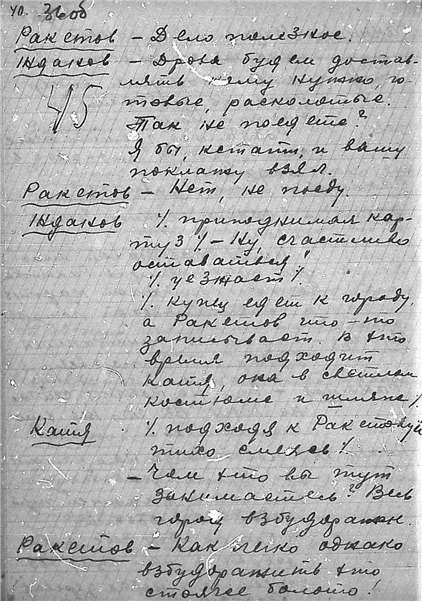 40. Зъоб
Ракетов – Дело полезное.
Индаков – Дрова будем достав-
лять кому нужно, го-
товые, расколотые.
45
Так не поедете?
Я бы, кстати, и вашу
поклажу взял.
Ракетов – Нет, не поеду.
Индаков /. приподнимая кар-
туз /. – Ну, счастливо
оставаться!
/. уезжает /.
/. купец едет к городу,
а Ракетов что-то
записывает. В это
время подходит
Катя, она в светлом
костюме и шляпе /.
Катя /. подходя к Ракетову и
тихо смеясь /.
– Чем это вы тут
занимаетесь? Весь
город взбудоражен.
Ракетов – Как легко однако
взбудоражить это
стоячее болото!